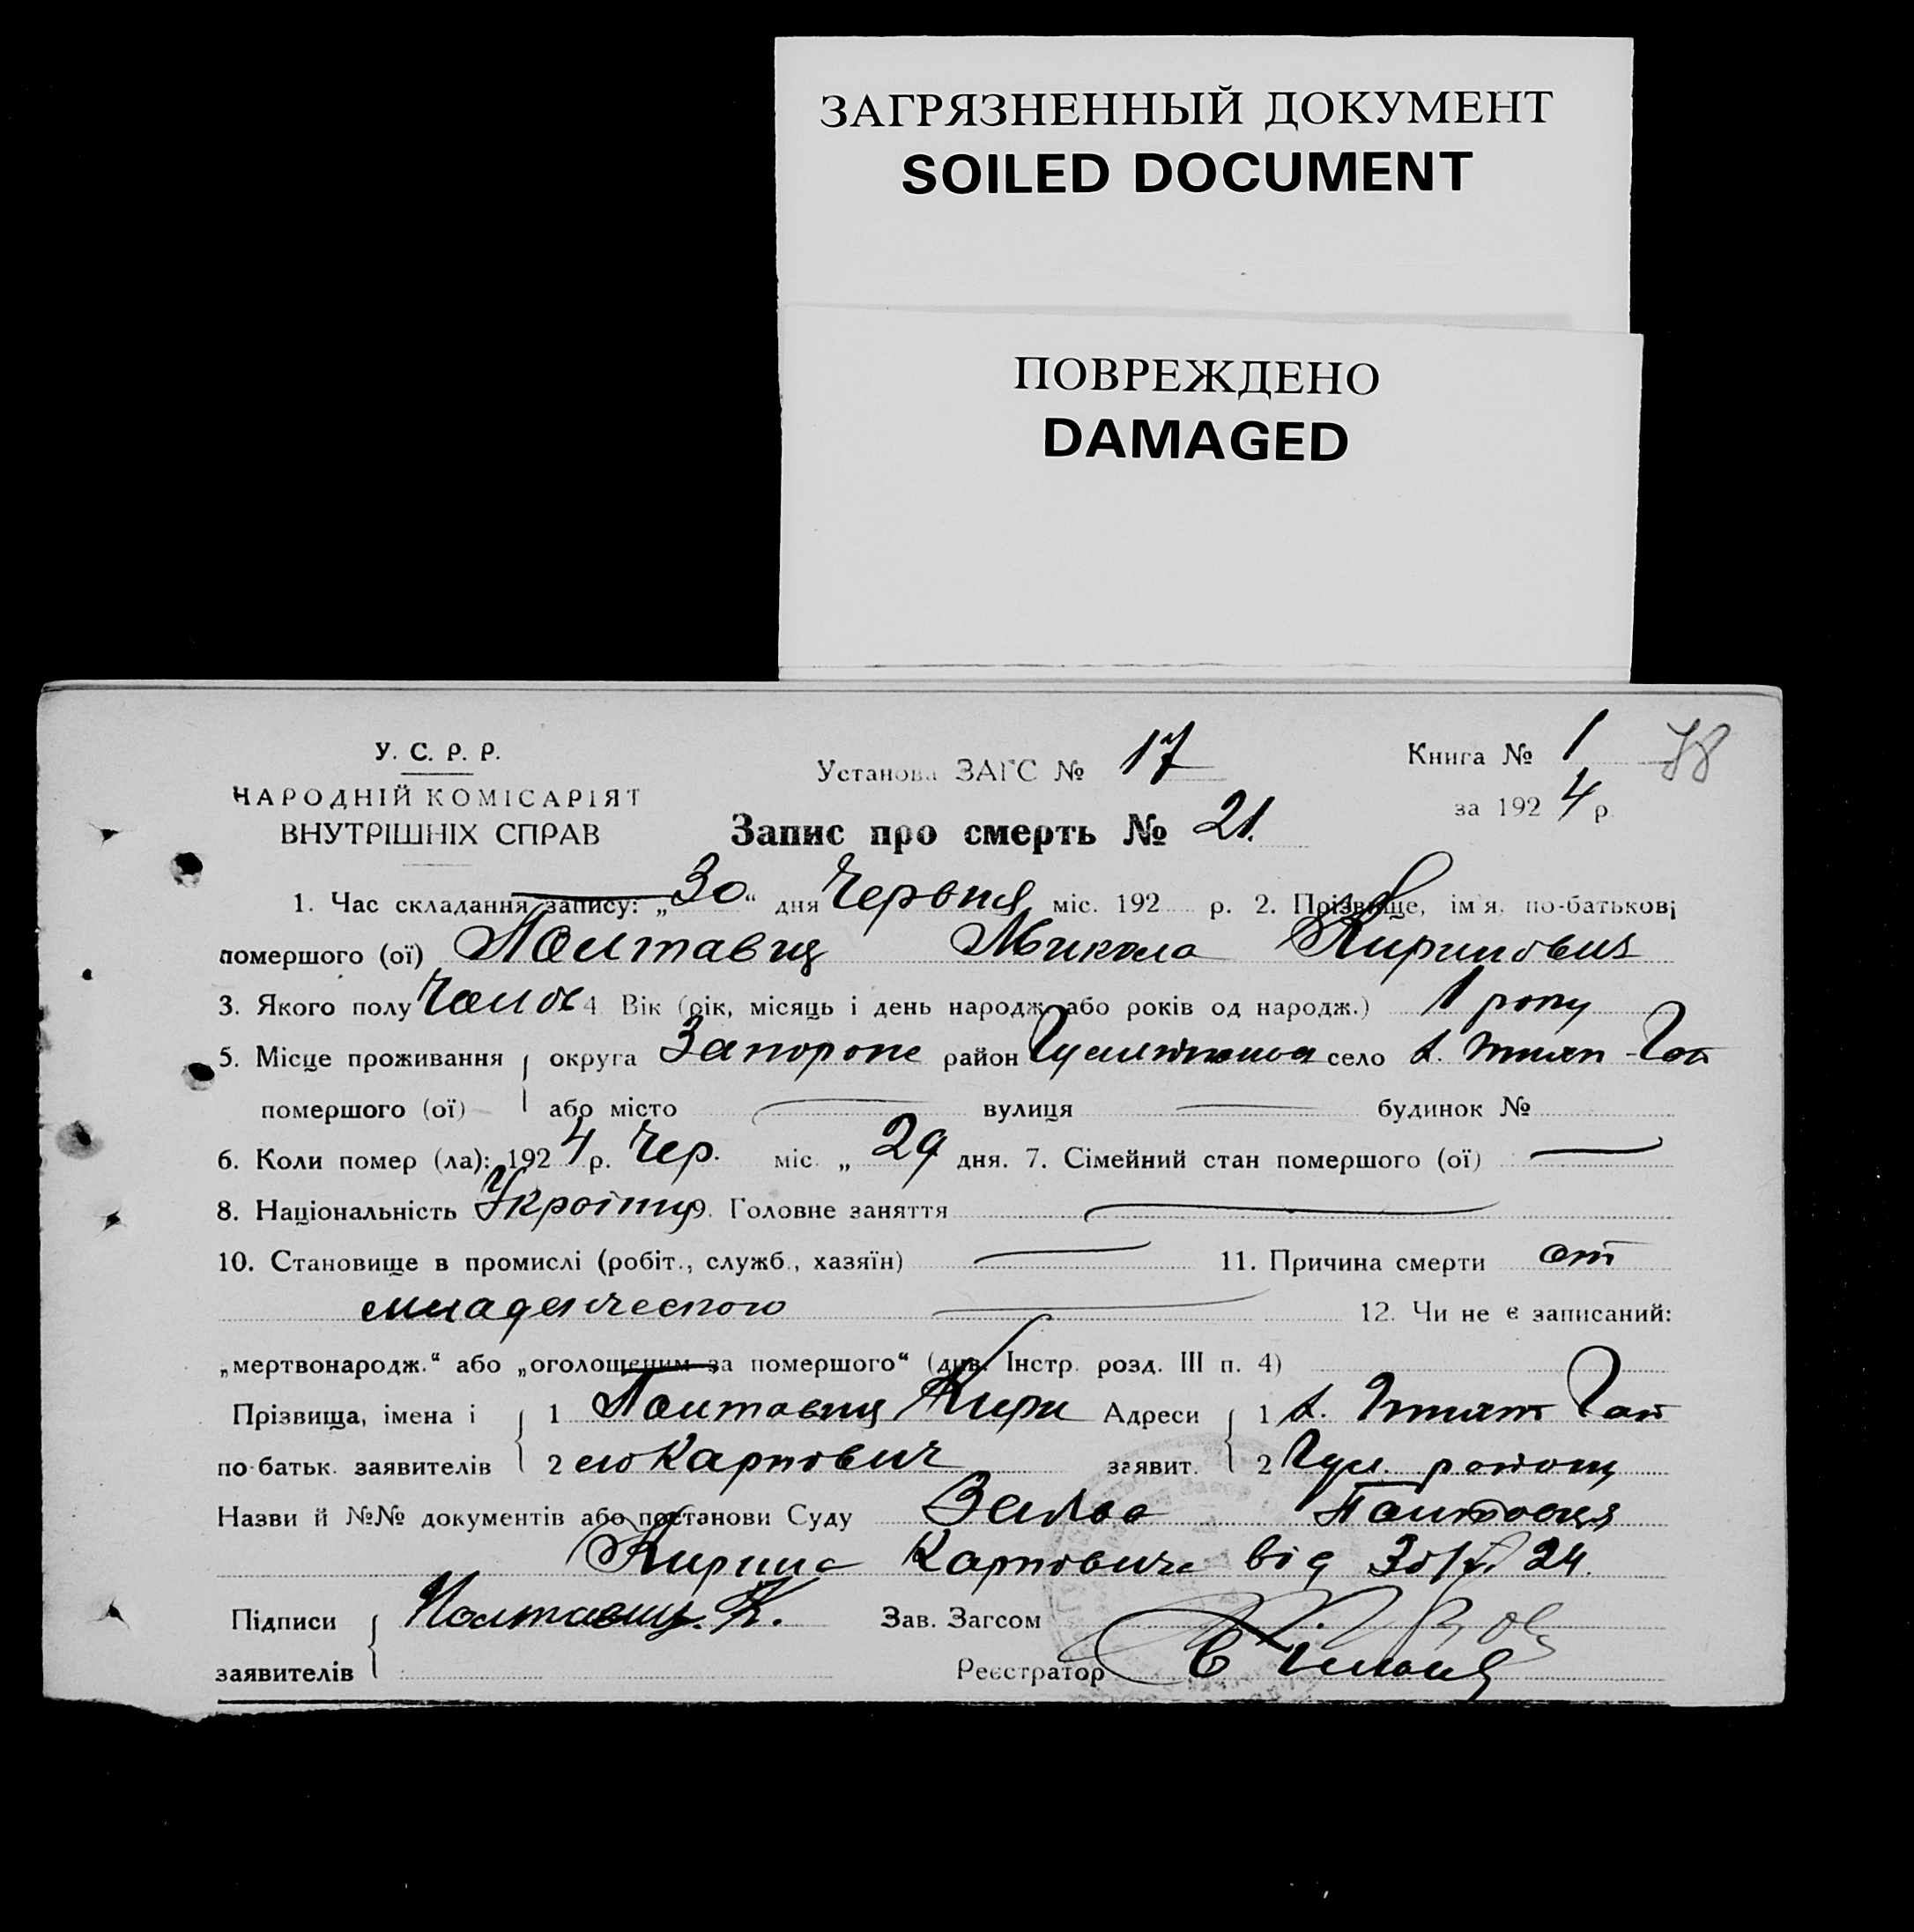 ЗАГРЯЗНЕННЫЙ ДОКУМЕНТ
SOILED DOCUMENT
ПОВРЕЖДЕНО
DAMAGED
У. С. Р. Р.
НАРОДНІЙ КОМІСАРІЯТ
ВНУТРІШНІХ СПРАВ
Установа ЗАГС № 17
Книга № 1 78
за 1924 р.
Запис про смерть № 21.
1. Час складання запису: „30“ дня Червня міс. 192 р. 2. Прізвище, ім'я, по-батькові
помершого (ої) Полтавец Микола Кирилович
3. Якого полу Чолов 4. Вік (рік, місяць і день народж. або років од народж.) 1 року
5. Місце проживання округа Запорожс район село
помершого (ої) або місто вулиця будинок №
6. Коли помер (ла): 1924 р. Чер. міс. „29 дня. 7. Сімейний стан помершого (ої)
8. Національність Україну 9. Головне заняття
10. Становище в промислі (робіт., служб., хазяїн) 11. Причина смерти от
младенческого 12. Чи не є записаний:
„мертвонародж.“ або „оголошеним за помершого“ (див. Інстр. розд. III п. 4)
Прізвища, імена і 1 Полтавец Кири Адреси 1
по-батьк. заявителів 2 ло Карпович заявит. 2 Гул. району
Назви й №№ документів або постанови Суду Заява Полтавця
Кирила Карповича від 30/VI 24.
Підписи Полтавец. К. Зав. Загсом
заявителів Реєстратор